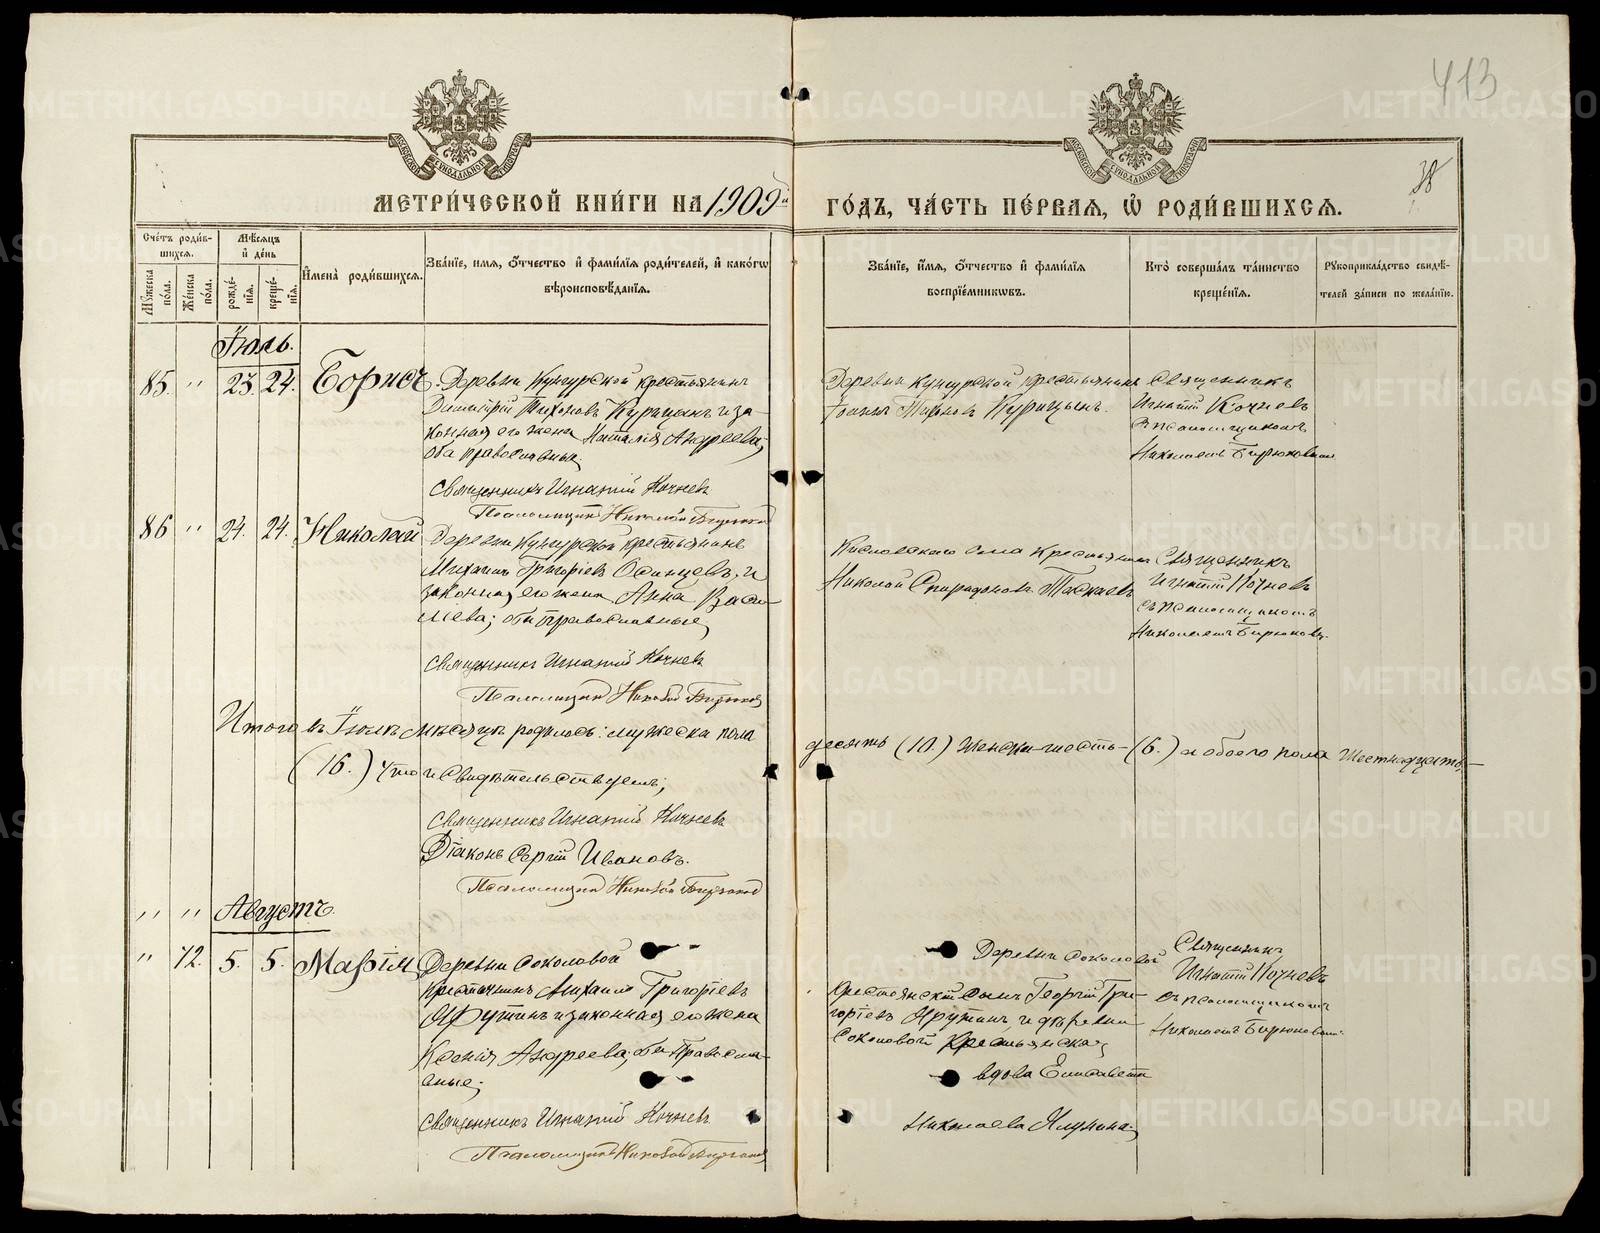 413
38
МЕТРИ́ЧЕСКОЙ КНИ́ГИ НА 1909й ГО́ДЪ, ЧА́СТЬ ПЕ́РВАЯ, Ѡ РОДИ́ВШИХСЯ.
Счетъ роди́вшихся.
Мѣ́сяцъ и де́нь
Мꙋжеска по́ла.
Же́нска по́ла.
рожде́нїя.
креще́нїя.
Имена̀ роди́вшихся.
Зва́нїе, имя, ѻ́тчество и фами́лїя роди́телей, и како́гѡ
вѣроисповѣ́данїя.
Зва́нїе, и́мя, ѻ́тчество и фами́лїя
воспрїе́мникѡвъ.
Кто̀ соверша́лъ та́инство
креще́нїя.
Рꙋкоприкла́дство свидѣ́телей за́писи по жела́нїю.
Іюль.
85. " 23. 24. Борисъ.
Деревни Кунгурской крестьянинъ
Димитрій Тихоновъ Курицынъ и за-
конная его жена Наталія Андреева,
оба православные.
Священникъ Игнатій Кочневъ
Псаломщикъ Николай Бирюковъ
Деревни Кунгурской крестьянинъ
Іоаннъ Тихоновъ Курицынъ.
Священникъ
Игнатій Кочневъ
съ псаломщикомъ
Николаемъ Бирюковымъ
86 " 24. 24. Николай
Деревни Кунгурской крестьянинъ
Михаилъ Григоріевъ Осинцевъ, и
законная его жена Анна Васи-
лiева; оба православные,
Священникъ Игнатій Кочневъ
Псаломщикъ Николай Бирюковъ
Кисловскаго села крестьянинъ
Николай Спиридоновъ Таскаевъ
Священникъ
Игнатій Кочневъ
съ псаломщикомъ
Николаемъ Бирюковы.
Итого въ Іюлѣ мѣсяцѣ родилось: мужеска пола десять (10.) Женска шесть (6.) а обоего пола Шестнадцать,
(16.) Что и свидѣтельствуемъ;
Священникъ Игнатій Кочневъ
Діаконъ Сергій Ивановъ.
Псаломщикъ Николай Бирюковъ
" " Августъ.
" 72. 5. 5. Марія
Деревни Соколовой
крестьянинъ Михаилъ Григоріевъ
Ярутинъ и законная его жена
Ксенія Андреева, оба православ-
ные;
Священникъ Игнатій Кочневъ
Псаломщикъ Николай Бирюковъ
Деревни Соколовой
крестьянскій сынъ Георгій Гри-
горіевъ Ярутинъ, и деревни
Соколовой крестьянская
вдова Елисавета
Николаева Ялунина,
Священникъ
Игнатій Кочневъ
съ псаломщикомъ
Николаемъ Бирюковымъ
METRIKI.GASO-URAL.RU